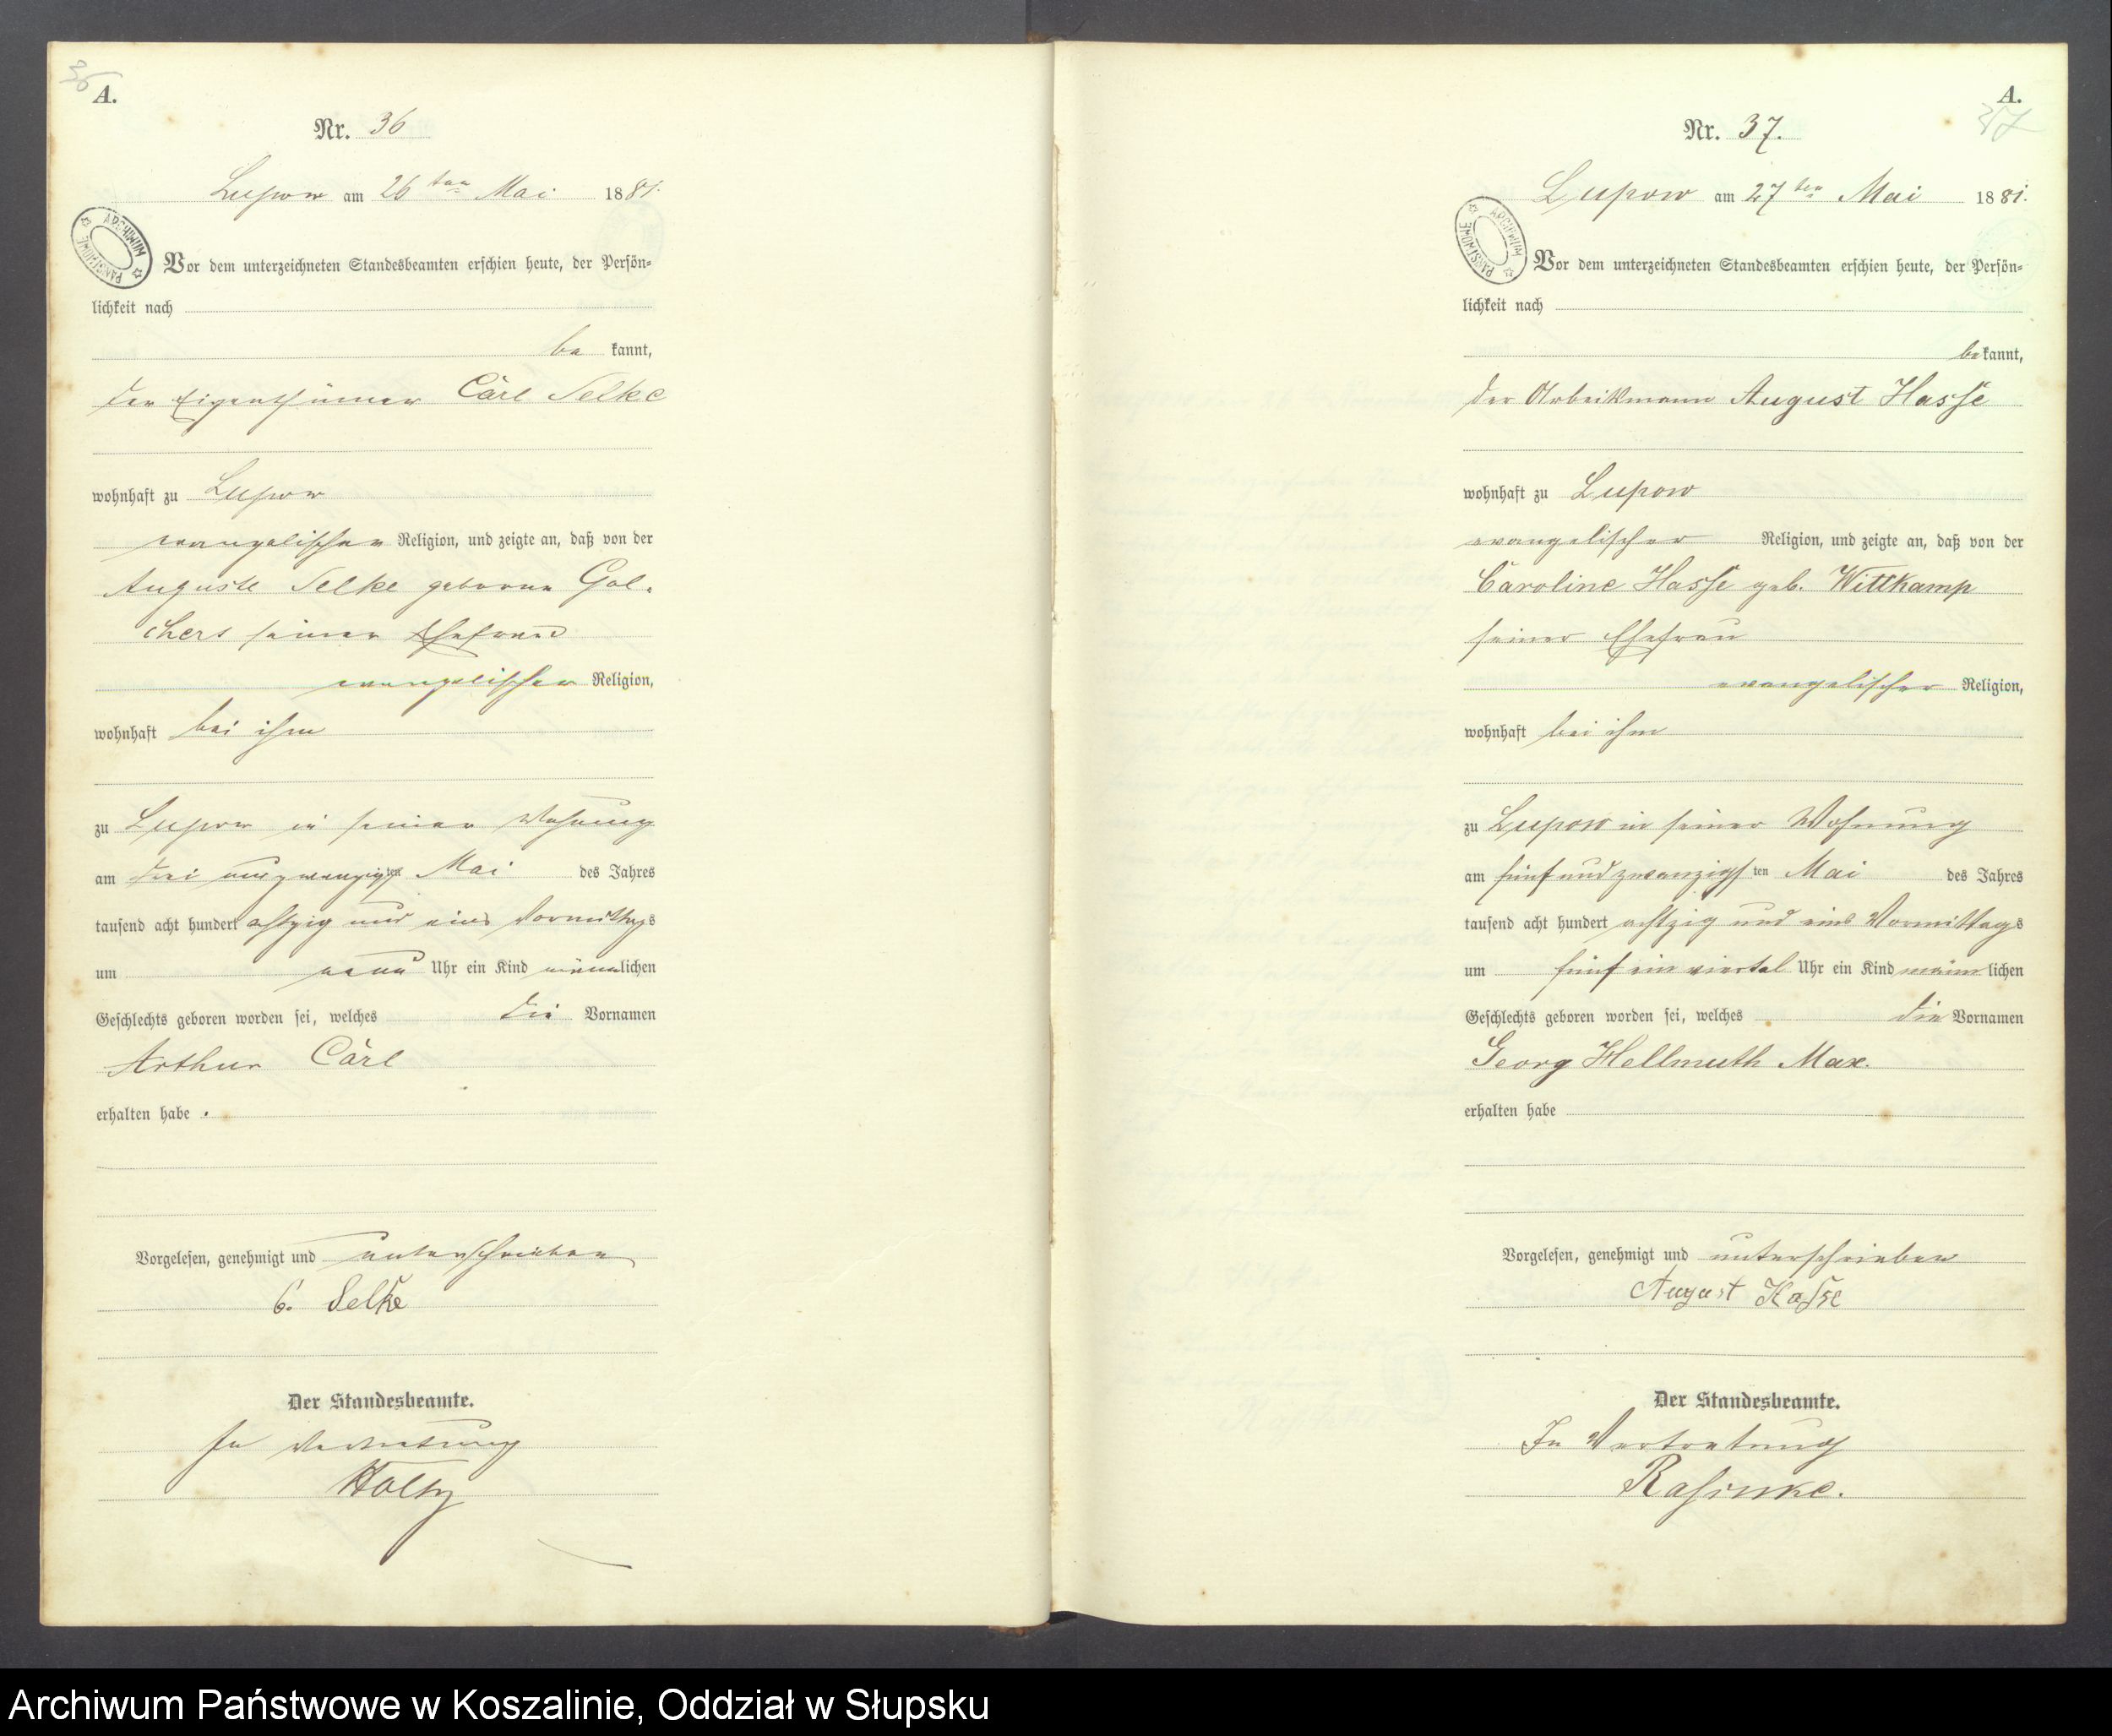 36
A.
Nr. 36
Lupow am 26 ten Mai 1881.
ARCHIWUM PAŃSTWOWE
Vor dem unterzeichneten Standesbeamten erschien heute, der Persön-
lichkeit nach
be kannt,
der Eigenthümer Carl Selke
wohnhaft zu Lupow
evangelischer Religion, und zeigte an, daß von der
Auguste Selke geborne Gol-
chers seiner Ehefrau
evangelischer Religion,
wohnhaft bei ihm
zu Lupow in seiner Wohnung
am drei und zwanzigsten Mai des Jahres
tausend acht hundert achtzig und eins Vormittags
um neun Uhr ein Kind männlichen
Geschlechts geboren worden sei, welches die Vornamen
Arthur Carl
erhalten habe.
Vorgelesen, genehmigt und unterschrieben
C. Selke
Der Standesbeamte.
In Vertretung
A.
37
Nr. 37.
Lupow am 27 ten Mai 1881.
ARCHIWUM PAŃSTWOWE
Vor dem unterzeichneten Standesbeamten erschien heute, der Persön-
lichkeit nach
bekannt,
der Arbeitsmann August Hasse
wohnhaft zu Lupow
evangelischer Religion, und zeigte an, daß von der
Caroline Hasse geb. Wittkamp
seiner Ehefrau
evangelischer Religion,
wohnhaft bei ihm
zu Lupow in seiner Wohnung
am fünf und zwanzigsten Mai des Jahres
tausend acht hundert achtzig und eins Vormittags
um fünf ein viertel Uhr ein Kind männlichen
Geschlechts geboren worden sei, welches die Vornamen
Georg Hellmuth Max.
erhalten habe
Vorgelesen, genehmigt und unterschrieben
August Hasse
Der Standesbeamte.
In Vertretung
Archiwum Państwowe w Koszalinie, Oddział w Słupsku